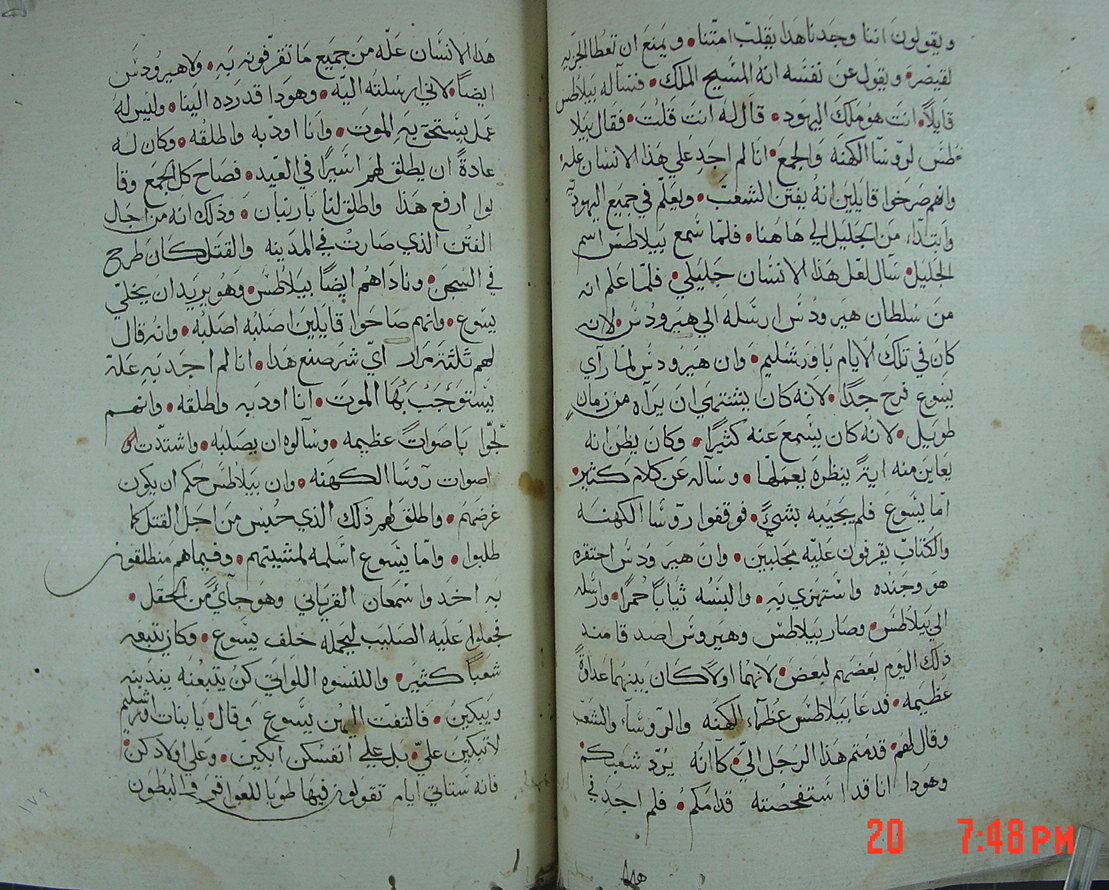 ويقولون اننا وجدنا هذا يقلب امتنا • ويمنع ان تعطا الجزيه
لقيصر • ويقول عن نفسه انه المسيح الملك • فسآله بيلاطس
قايلاً • انت هو ملك اليهود • قال له انت قلت • فقال بيلا
طس لروسا الكهنه والجمع • انا لم اجد علي هذا الانسان عله •
وانهم صرخوا قايلين انه يفتن الشعب • ويعلم في جميع اليهوديه
وابتدا، من الجليل الي هاهنا • فلما سمع بيلاطس اسم
الجليل • سال لعل هذا الانسان جليلي • فلما علم انه
من سلطان هيرودس ارسله الي هيرودس • لانه
كان في تلك الايام باورشليم • وان هيرودس لما رآي
يسوع فرح جدًا • لانه كان يشتهي ان يراه من زمان
طويل • لانه كان يسمع عنه كثيرًا • وكان يظن انه
يعاين منه ايةً ينظره يعملها • وسآله عن كلام كثير •
اما يسوع فلم يجيبه بشيءٍ • فوقفوا روسا الكهنه
والكتاب يقرفون عليه مجلبين • وان هيرودس احتقره
هو وجنده واستهزي به • والبسه ثياباً حمرًا • وارسله
الي بيلاطس • وصار بيلاطس وهيرودس اصدقا منذ
ذلك اليوم بعضهم لبعض • لانهما اولاً كان بينهما عداوةً
عظيمه • فدعا بيلاطس عظماء الكهنه والروساء والشعب
وقال لهم • قدمتم هذا الرجل اليّ • كانه يردّ شعبكم •
وهودا انا قد استفحصته قدامكم • فلم اجد في
هذا
هذا الانسان علّه من جميع ما تقرفونه به • ولا هيرودس
ايضاً • لاني ارسلته اليه • وهودا قد رده الينا • وليس له
عمل يستحق به الموت • وانا اودبه واطلقه • وكان له
عادةً ان يطلق لهم اسيرًا في العيد • فصاح كل الجمع وقا
لوا ارفع هذا واطلق لنا باربان • وذلك انه من اجل
الفتن الذي صارت في المدينه والقتل كان طرح
في السجن • وناداهم ايضاً بيلاطس • وهو يريد ان يخلي
يسوع • وانهم صاحوا قايلين اصلبه اصلبه • وانه قال
لهم ثلثة مرار اي شر صنع هذا • انا لم اجد به علة
يستوجب بها الموت • انا اودبه واطلقه • وانهم
لجّوا باصوات عظيمه • وسآلوه ان يصلبه • واشتدت
اصوات روسا الكهنه • وان بيلاطس حكم ان يكون
غرضهم • واطلق لهم ذلك الذي حبس من اجل القتل كما
طلبوا • واما يسوع اسلمه لمشيتهم • وفيما هم منطلقون
به اخدوا سمعان القرياني وهو جآي من الحقل •
فحملوا عليه الصليب ليحمله خلف يسوع • وكان يتبعه
شعباً كثير • واللنسوه اللواتي كن يتبعنه يندبنه
ويبكين • فالتفت الهن يسوع وقال • يا بنات اورشليم
لا تبكين عليّ • بل علي انفسكن ابكين • وعلي اولادكن •
فانه ستاتي ايام تقولون فيها طوبا للعواقر والبطون
١٧٩
20 7:48 PM